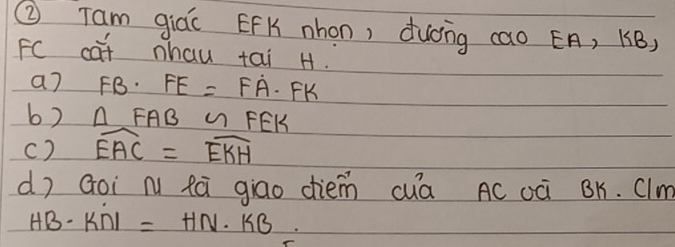 ② Tam giác EFK nhọn, đường cao EA, KB,
FC cắt nhau tại H.
a) FB. FE = FA. FK
b) Δ FAB ∽ FEK
c) \widehat{EAC} = \widehat{EKH}
d) Gọi N là giao điểm của AC và BK. C/m
HB. KN = HN. KB.